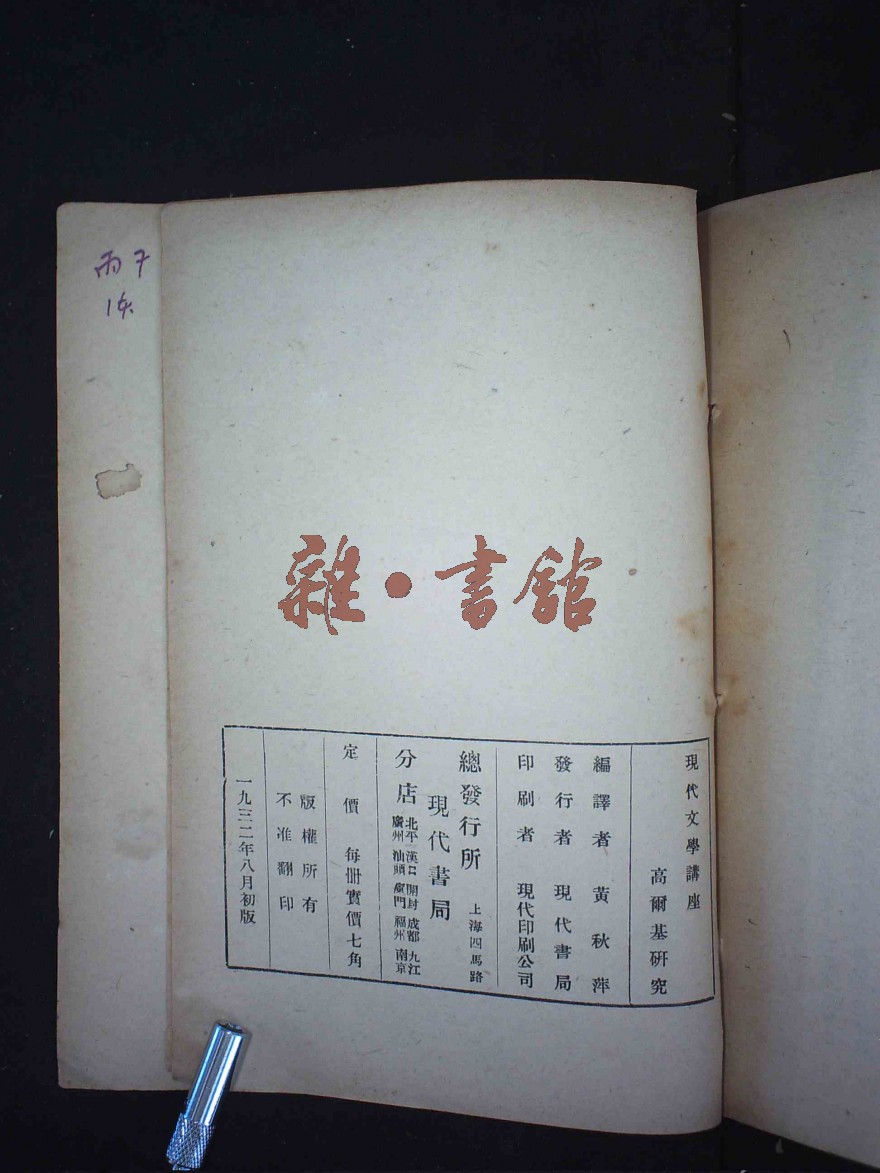 現代文學講座
高爾基研究
編譯者 黃秋萍
發行者 現代書局
印刷者 現代印刷公司
總發行所 上海四馬路
現代書局
分店 北平 漢口 開封 成都 九江
廣州 汕頭 廈門 福州 南京
定價 每冊實價七角
版權所有
不准翻印
一九三二年八月初版
雜·書館